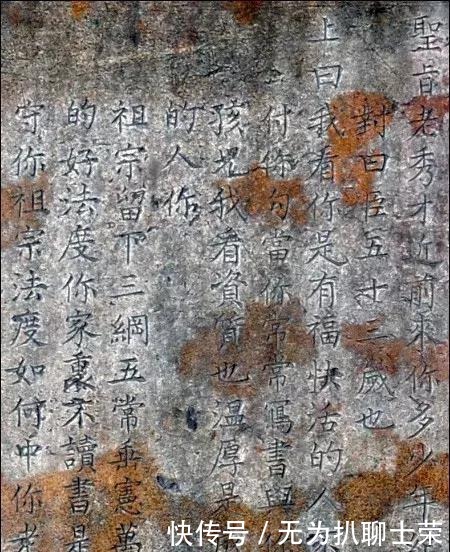 聖旨老秀才近前來你多少年
對曰臣五十三歲也
上曰我看你是有福快活的人
付你勾當你常常寫書與
孩兒我看資質也溫厚是
的人你
祖宗留下三綱五常垂憲萬
的好法度你家裏不讀書是
守你祖宗法度如何中你老
快传号 / 无为扒聊士荣